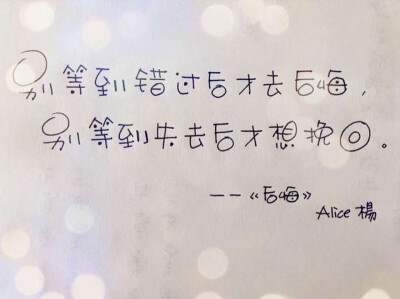 别等到错过后才去后悔，
别等到失去后才想挽回。
——《后悔》
Alice 楊